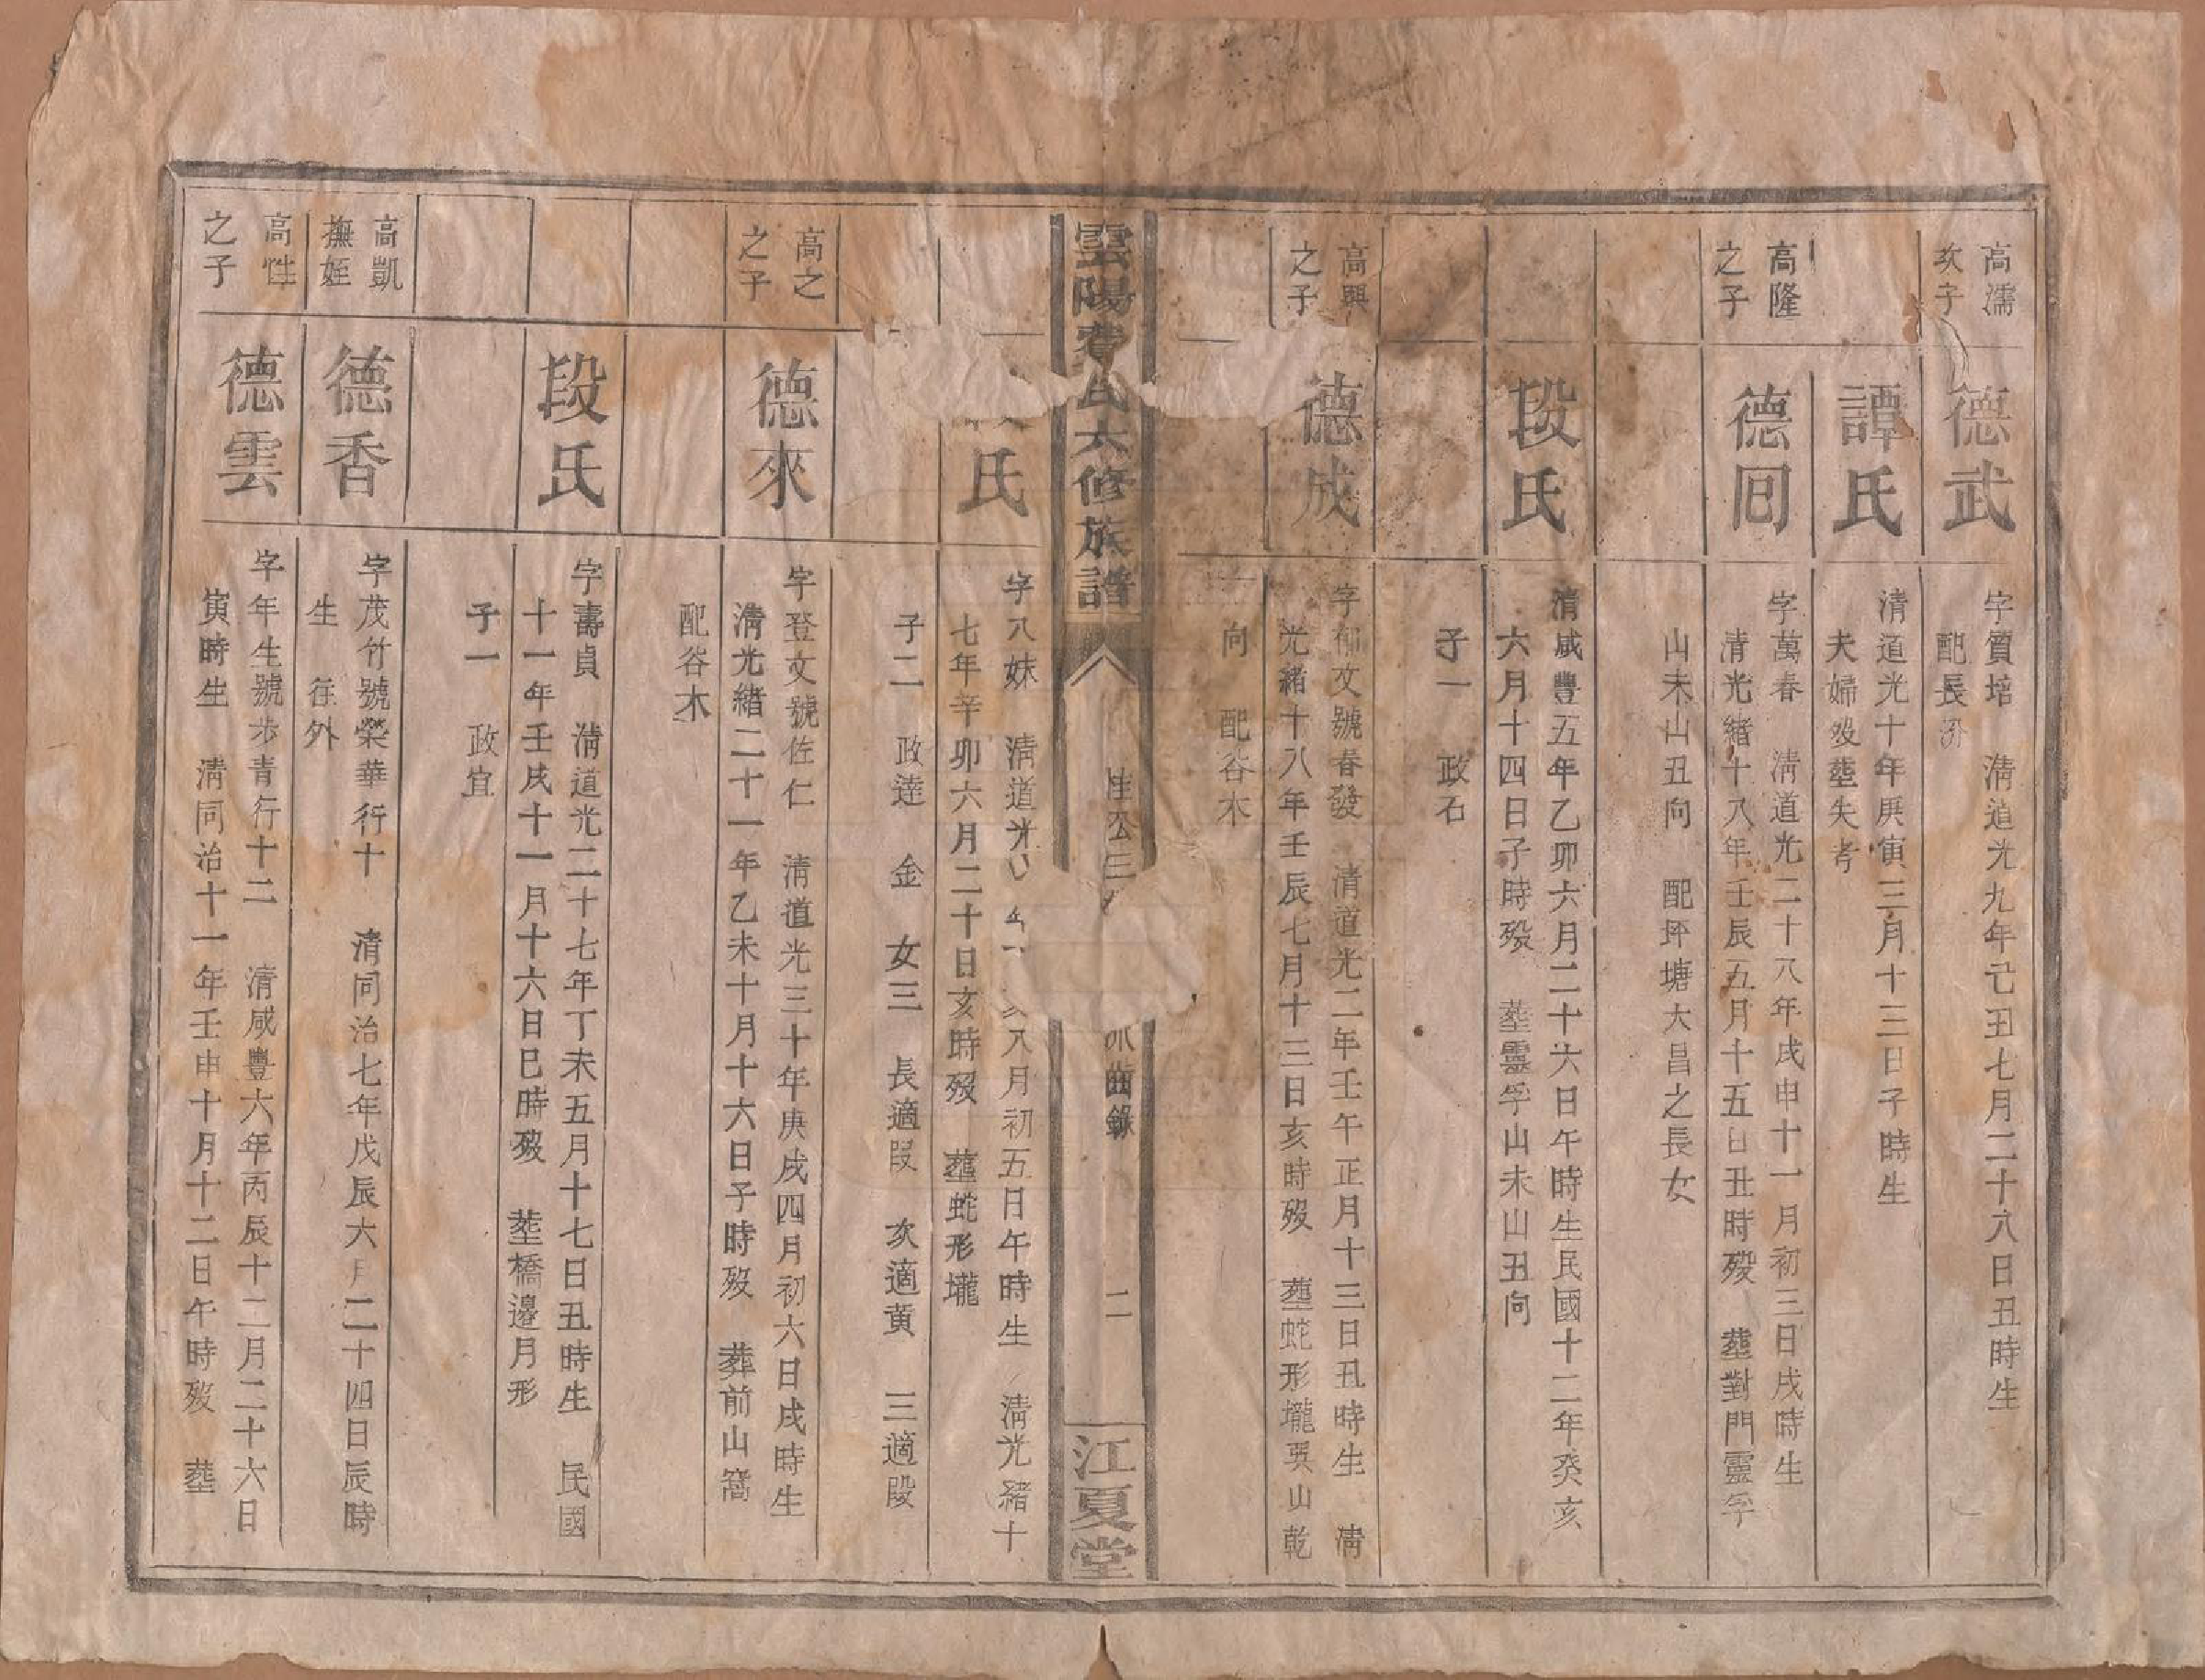 高濡
次子
德武
字質培　清道光九年己丑七月二十八日丑時生
配長沙
譚氏
清道光十年庚寅三月十三日子時生
夫婦歿塟失考
高隆
之子
德囘
字萬春　清道光二十八年戌申十一月初三日戌時生
清光緒十八年壬辰五月十五日丑時歿　塟對門靈孚
山未山丑向　配坪塘大昌之長女
段氏
清咸豐五年乙卯六月二十六日午時生民國十二年癸亥
六月十四日子時歿　塟靈孚山未山丑向
子一　政石
高興
之子
德成
字郁文號春發　清道光二年壬午正月十三日丑時生　清
光緒十八年壬辰七月十三日亥時歿　塟蛇形壠巽山乾
向　配谷木
雲陽黄氏六修族譜
公三
齒錄
二
江夏堂
氏
字八妹　清道光　八月初五日午時生　清光緒十
七年辛卯六月二十日亥時歿　塟蛇形壠
子二　政達　金　女三　長適段　次適黄　三適段
高之
之子
德來
字登文號佐仁　清道光三十年庚戌四月初六日戌時生
清光緒二十一年乙未十月十六日子時歿　葬前山窩
配谷木
段氏
字壽貞　清道光二十七年丁未五月十七日丑時生　民國
十一年壬戌十一月十六日巳時歿　塟橋邊月形
子一　政宜
高凱
撫姪
德香
字茂竹號榮華行十　清同治七年戊辰六月二十四日辰時
生　往外
高性
之子
德雲
字年生號步青行十二　清咸豐六年丙辰十二月二十六日
寅時生　清同治十一年壬申十月十二日午時歿　塟